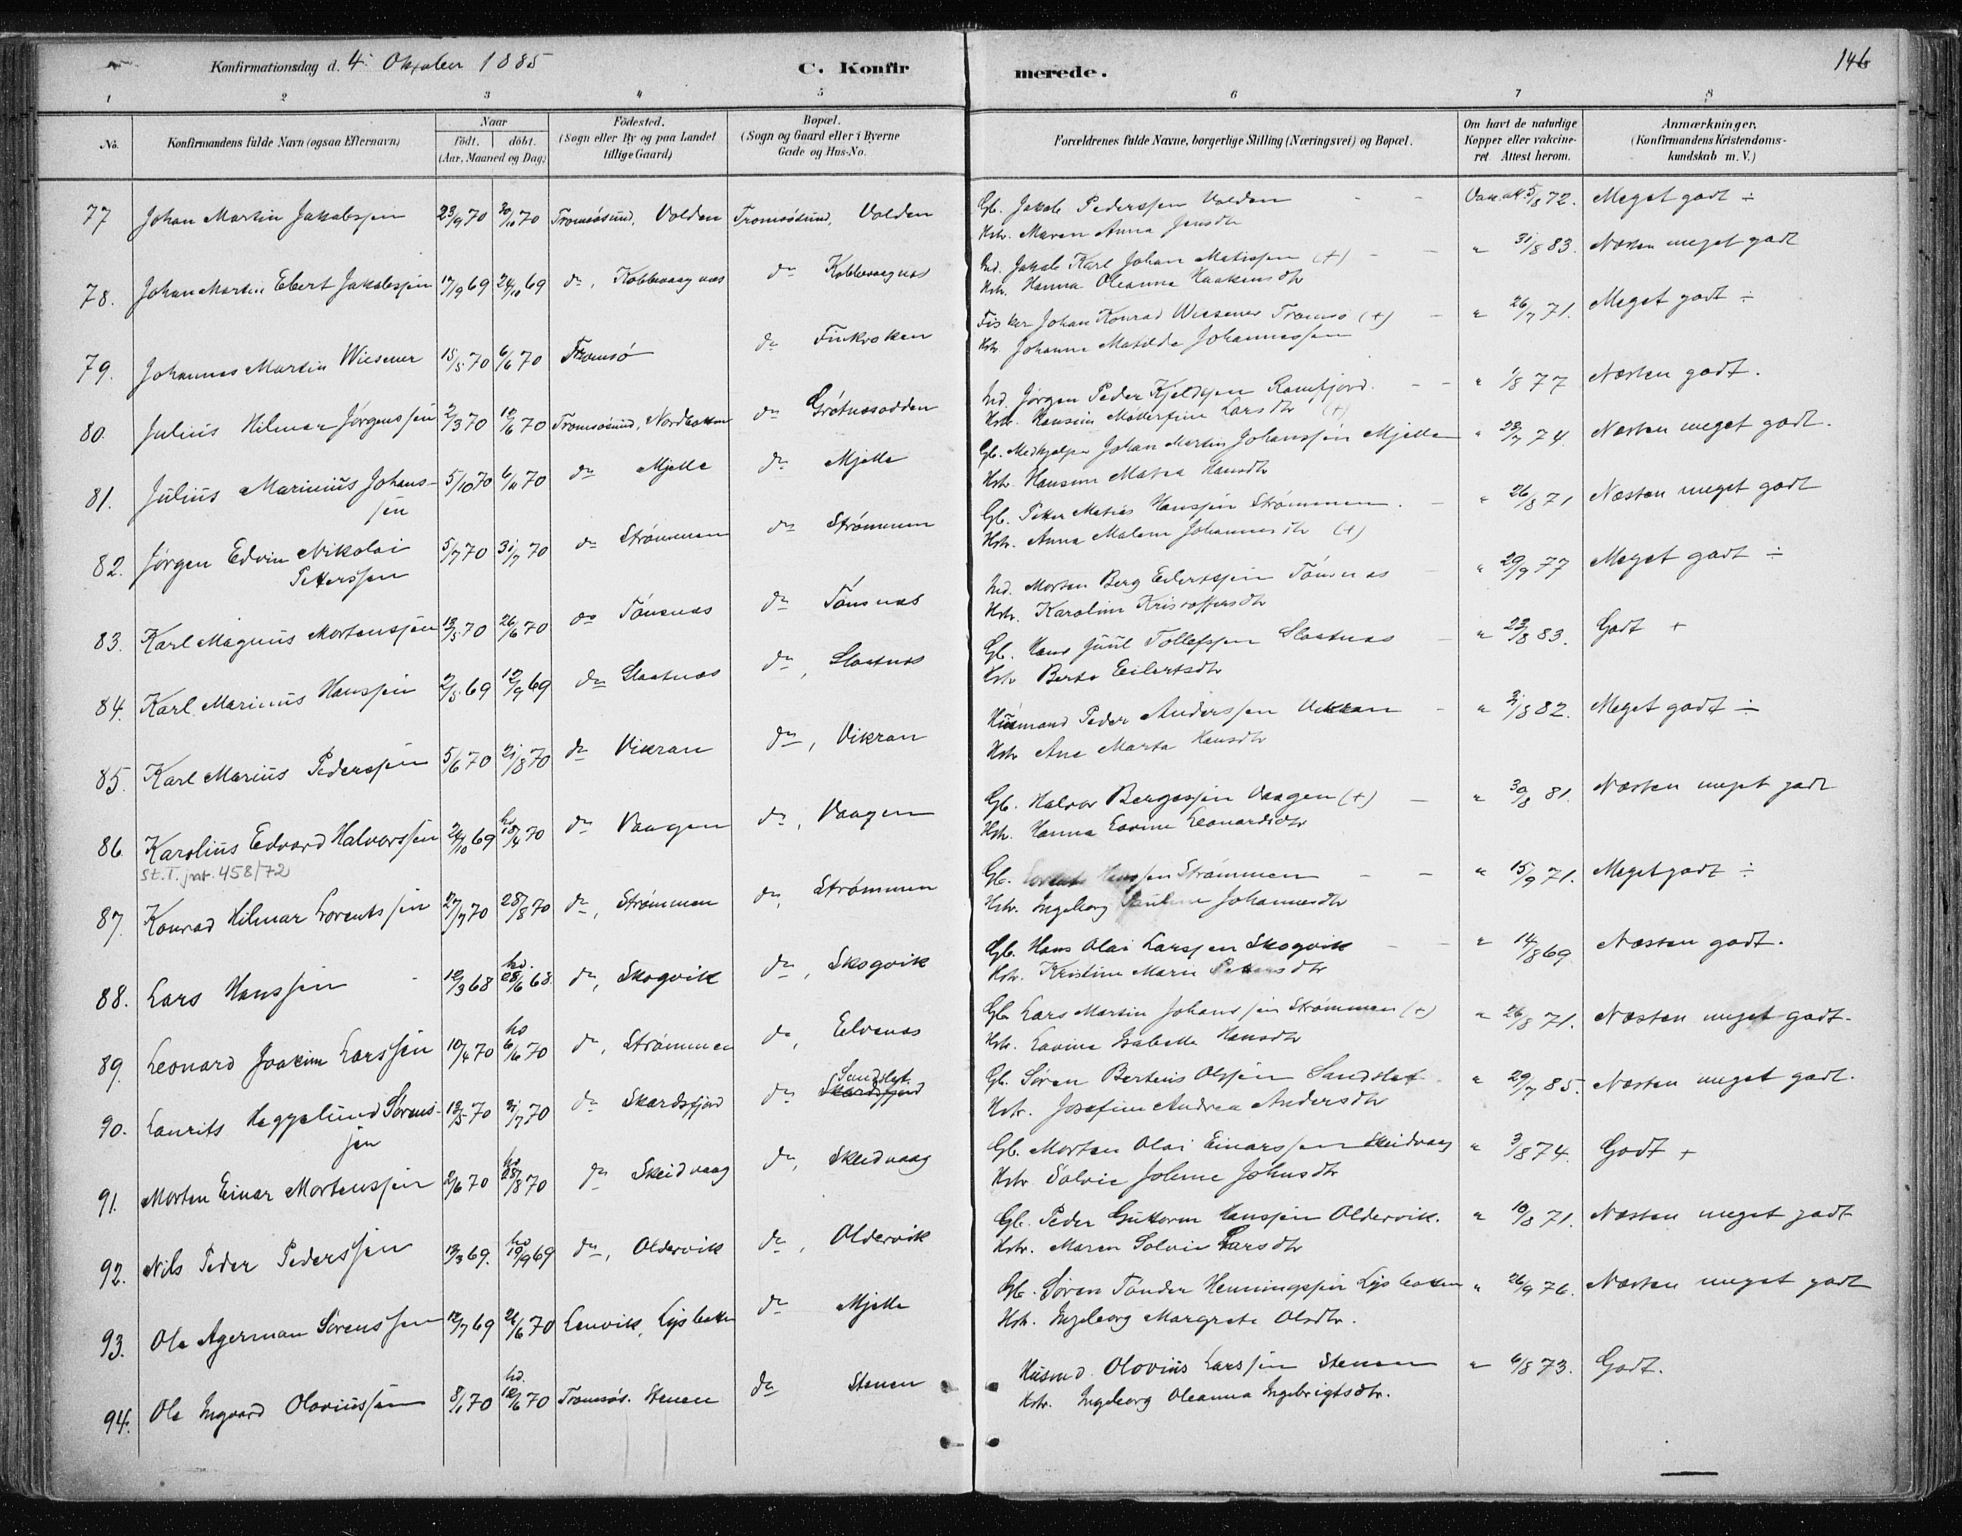 Konfirmationsdag d. 4. Oktober 1885 C. Konfirmerede. 146
1 2 3 4 5 6 7 8
No. Konfirmandens fulde Navn (ogsaa Efternavn) Naar Födt. döbt. (Aar, Maaned og Dag) Födested. (Sogn eller By og paa Landet tillige Gaard) Bopæl. (Sogn og Gaard eller i Byerne Gade og Hus-No. Forældrenes fulde Navne, borgerlige Stilling (Næringsvei) og Bopæl. Om havt de naturlige Kopper eller vakcineret Attest herom. Anmærkninger. (Konfirmandens Kristendomskundskab m. V.)
77 Johan Martin Jakobssen 23/9 70 30/10 70 Tromsösund, Volden Tromsösund, Volden Gb. Jakob Pederssen Volden 5/8 72. Meget godt ÷
Hstr. Maren Anna Jensdtr
78. Johan Martin Ebert Jakobssen 17/9 69 24/10 69 do, Kobbevaagnæs do Kobbevaagnæs Ind. Jakob Karl Johan Matissen (+) " 31/8 83. Næsten meget godt
Hstr. Hanna Oleanna Haakensdtr
79. Johannes Martin Wiesener 15/5 70 6/6 70 Tromsø do Finkroken Fisker Johan Konrad Wiesener Tromsø (+) " 26/7 71. Meget godt ÷
Hstr. Johanna Matilde Johannessen
80. Julius Hilmar Jørgenssen 2/3 70 12/6 70 Tromsøsund, Nordbotten do Grötnæsodden Ind. Jørgen Peder Kjeldsen Ramfjord. " 1/8 77 Næsten godt.
Hstr. Hansine Larsdtr (+)
81. Julius Marinius Johanssen 5/10 70 6/11 70 do Mjelle do Mjelle Gb. Medhjelper Johan Martin Johanssen Mjelle " 23/7 74 Næsten meget godt.
Hstr. Hansine Matea Hansdtr
82. Jørgen Edvin Nikolai Peterssen 5/7 70 31/7 70 do Strømmen do Strømmen Gb. Peter Matias Hanssen Strømmen. " 26/8 71 Næsten meget godt
Hstr. Anna Malena Johannesdtr (+)
83. Karl Magnus Mortenssen 13/5 70 26/6 70 do Tönsnæs do Tönsnæs Ind. Morten Berg Eilertssen Tönsnæs " 29/9 77 Meget godt ÷
Hstr. Karoline Kristoffersdtr
84. Karl Marinus Hanssen 2/5 69 12/9 69 do Slaatnæs do, Slaatnæs Gb. Hans Juul Tollefssen Slaatnæs " 23/8 83. Godt +
Hstr Berte Eilertsdtr
85. Karl Marius Pederssen 5/6 70 21/8 70 do Vikran do, Vikran Husmand Peder Anderssen Vikran " 31/8 82. Meget godt ÷
Hstr Ane Marta Hansdtr
86. Karolius Edvard Halvorssen 24/10 69 hd 18/4 70 do Vaagen do, Vaagen Gb. Halvor Bergessen Vaagen (+) " 30/8 81. Næsten meget godt
St. T. jnr. 458/72 Hstr. Hanna Lovine Leonardsdtr
87. Konrad Hilmar Lorentssen 27/7 70 28/8 70 do, Strømmen do, Strømmen Gb. Lorents Hanssen Strømmen " 15/9 71. Meget godt ÷
Hstr. Ingeborg Pauline Johannesdtr
88. Lars Hanssen 12/3 68 hd. 28/6 68. do, Skogvik do, Skogvik Gb. Hans Olai Larssen Skogvik " 14/8 69 Næsten godt.
Hstr. Kristine Marie Petersdtr
89. Leonard Joakim Larssen 10/4 70 hd 6/6 70 do, Strømmen do, Eelvenæs Gb. Lars Martin Johanssen Strømmen (+) " 26/8 71. Næsten meget godt.
Hstr. Lavina Isabelle Hansdtr
90. Laurits Heggelund Sørenssen 12/5 70 31/7 70 do Skardsfjord do Skardsfjord Sandslet. Gb. Søren Bertius Olssen Sandslet " 29/7 85. Næsten meget godt.
Hstr. Josefine Andrea Andersdtr
91. Morten Einar Mortenssen 2/6 70 hd 28/8 70 do Skeidvaag do, Skeidvaag Gb. Morten Olai Einarssen Skeidvaag " 3/8 74. Godt +
Hstr. Solvie Joline Johnsdtr
92. Nils Peder Pederssen 13/3 69. hd 19/9 69 do, Oldervik do, Oldervik Gb. Peder Guttorm Hanssen Oldervik. " 10/8 71. Næsten meget godt
Hstr. Maren Solvie Larsdtr
93. Ole Agerman Sørenssen 12/7 69 26/6 70 Lenvik, Lysbotten do Mjelle Gb. Søren Tönder Henningssen Lysbotten " 26/9 76. Næsten meget godt
Hstr. Ingeborg Margrete Olsdtr.
94. Ole Ingvard Oloviussen 8/1 70 hd. 12/6 70 Tromsøs. Stenen do Stenen Husmd Olovius Larssen Stenen " 6/8 73. Godt.
Hstr. Ingeborg Oleanna Ingebrigtsdtr.